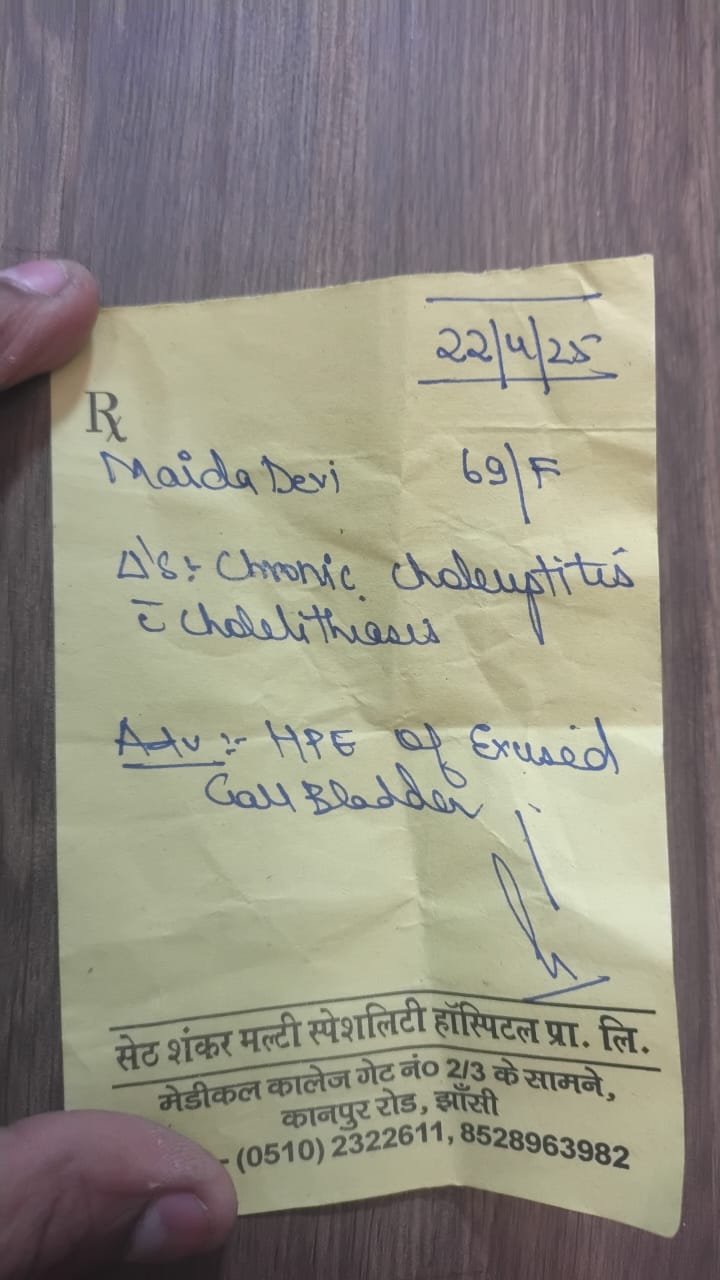 22/4/25
Rx
Maida Devi 69/F
Δ's:- Chronic Cholecystitis
c̄ Cholelithiasis
Adv:- HPE of Exused
Gall Bladder
सेठ शंकर मल्टी स्पेशलिटी हॉस्पिटल प्रा. लि.
मेडीकल कालेज गेट नं० 2/3 के सामने,
कानपुर रोड, झाँसी
- (0510) 2322611, 8528963982